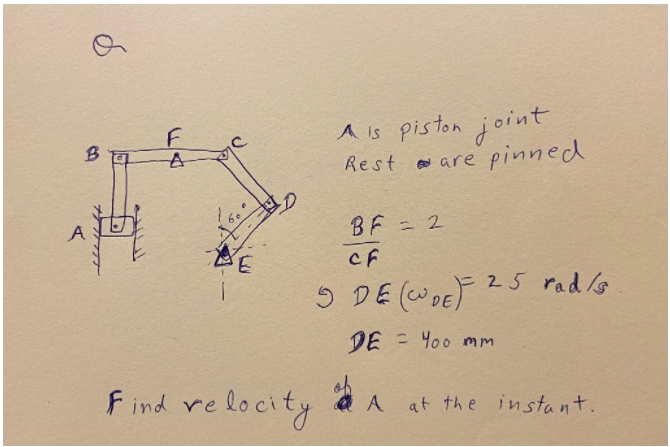 Q
A is piston joint
Rest are pinned
F
B
C
D
60°
A
E
BF = 2
CF
DE (ωDE) = 25 rad/s
DE = 400 mm
Find velocity of A at the instant.